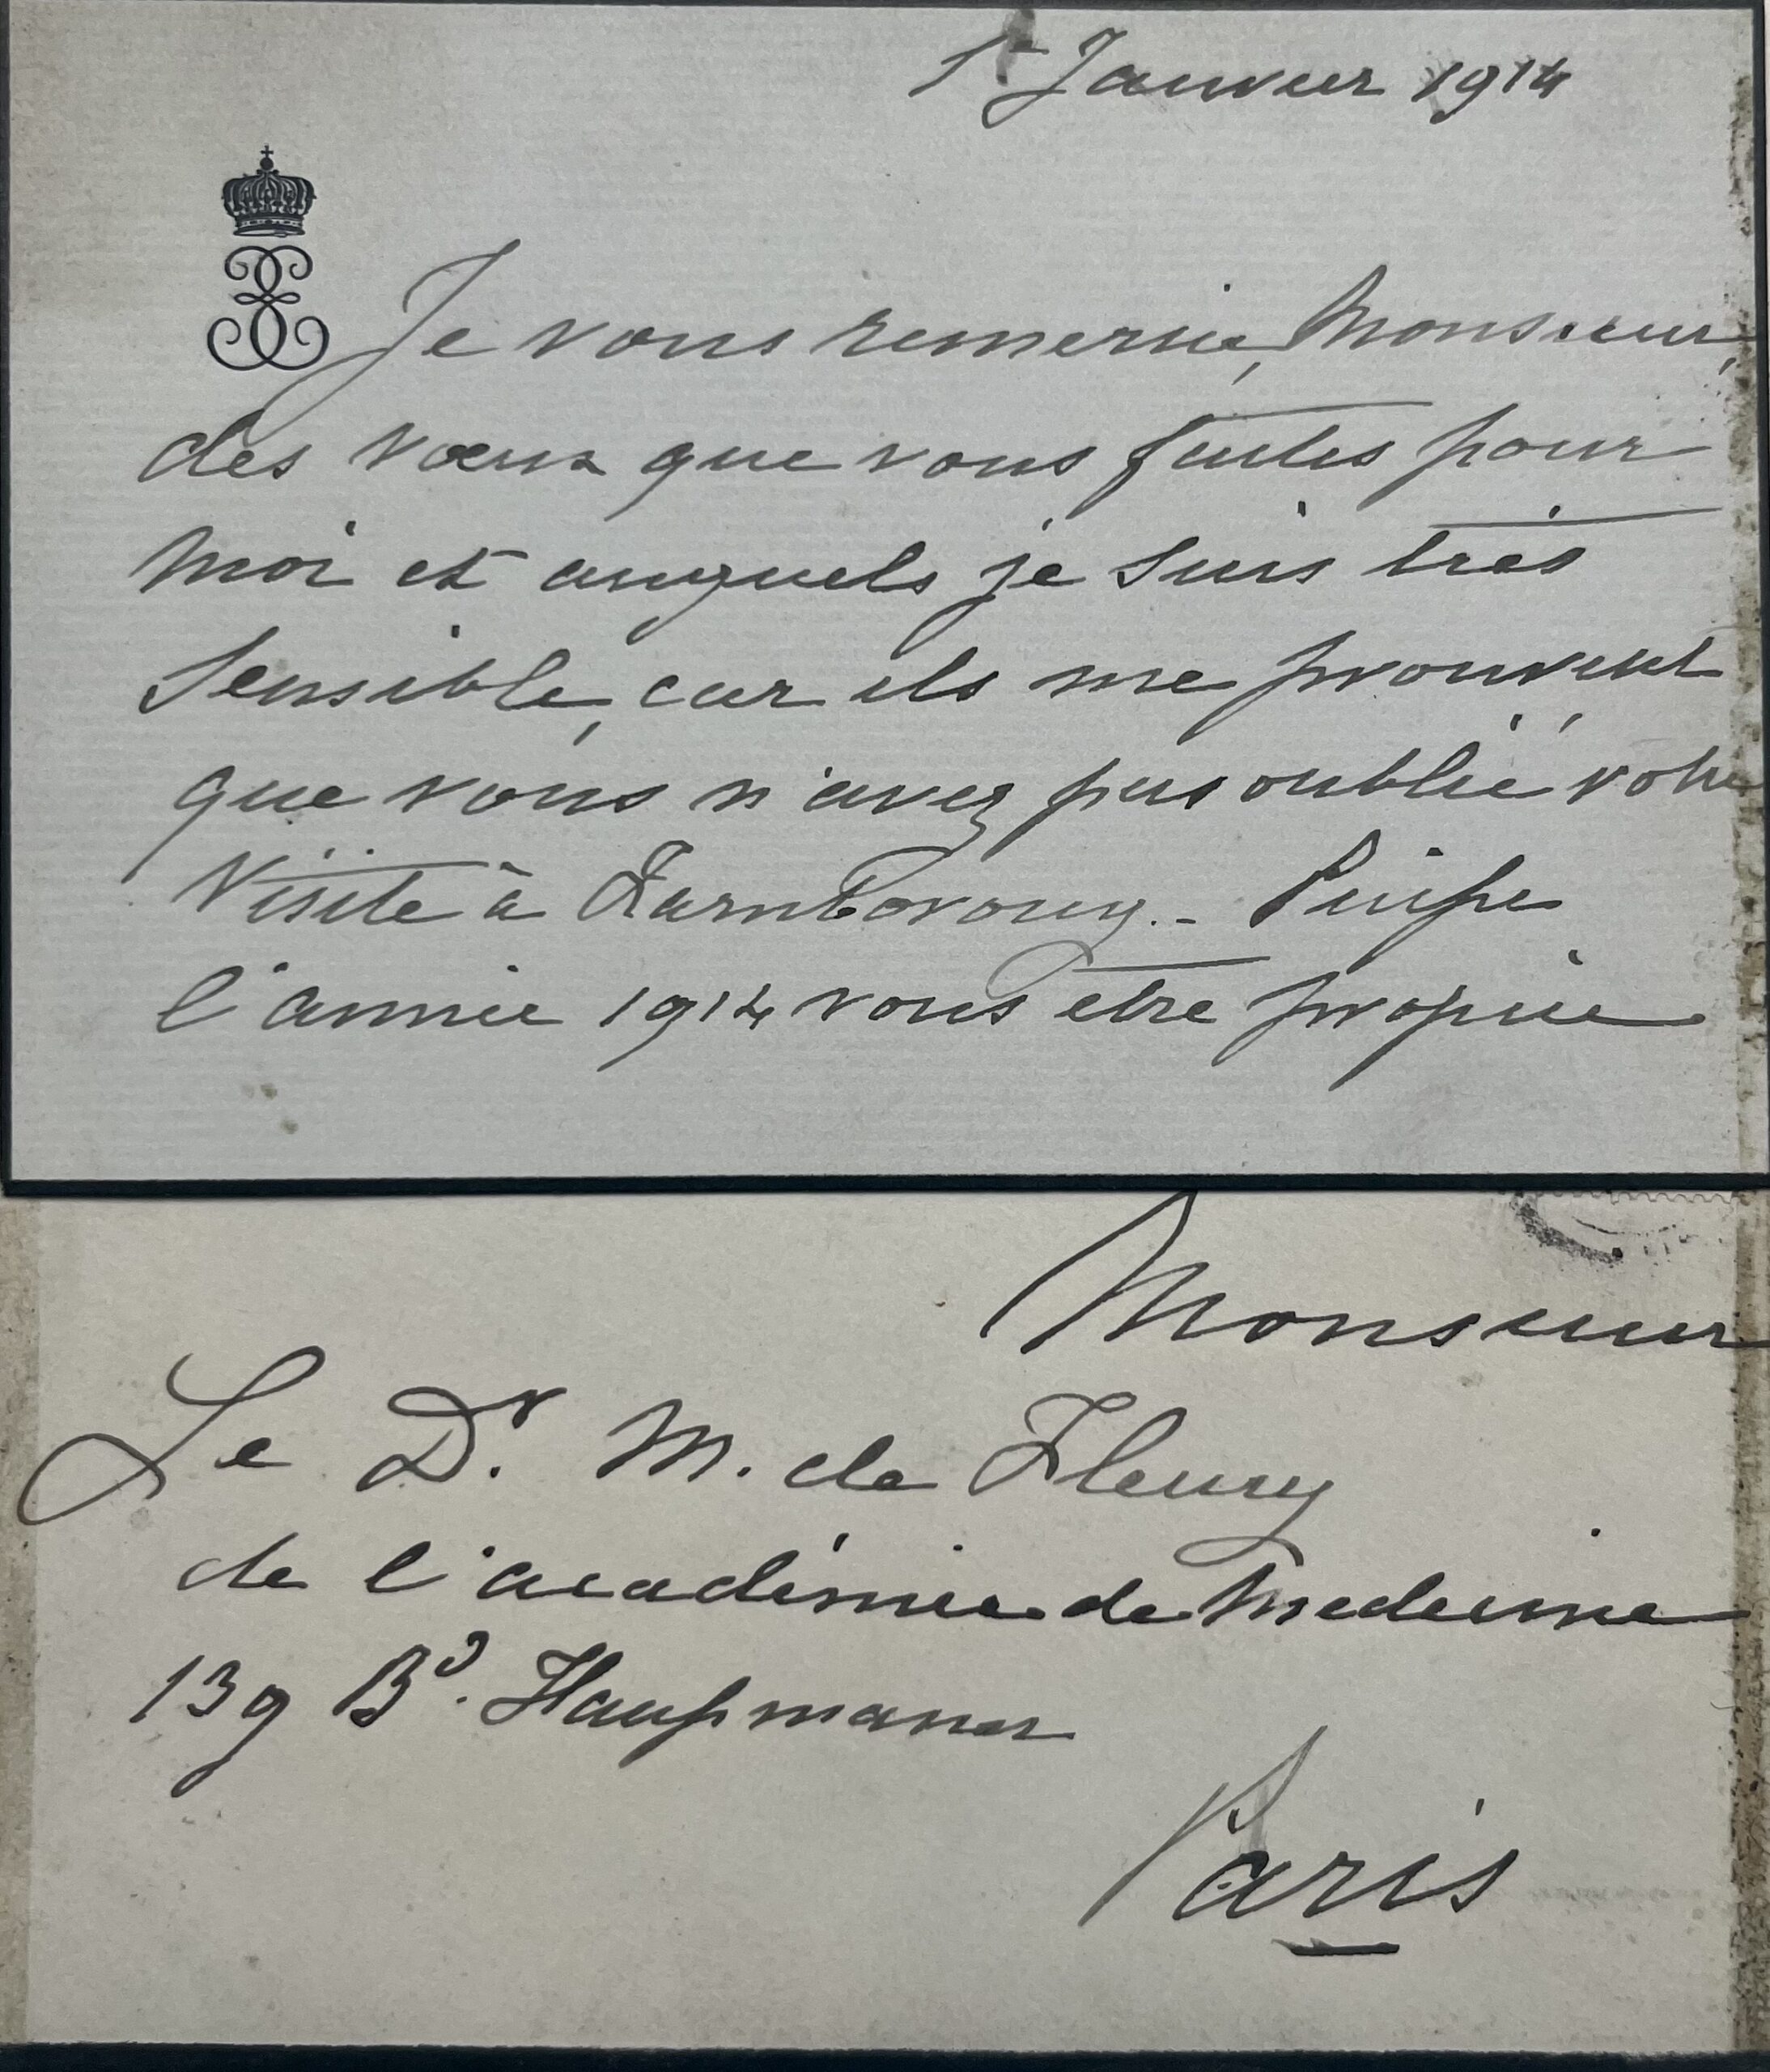 1r Janvier 1914
Je vous remercie, Monsieur,
des vœux que vous faites pour
moi et auxquels je suis très
sensible, car ils me prouvent
que vous n'avez pas oublié votre
visite à Farnborough. - Puisse
l'année 1914 vous être propice
Monsieur
Le Dr. M. de Fleury
de l'académie de Medecine
139 Bd. Haussmann
Paris